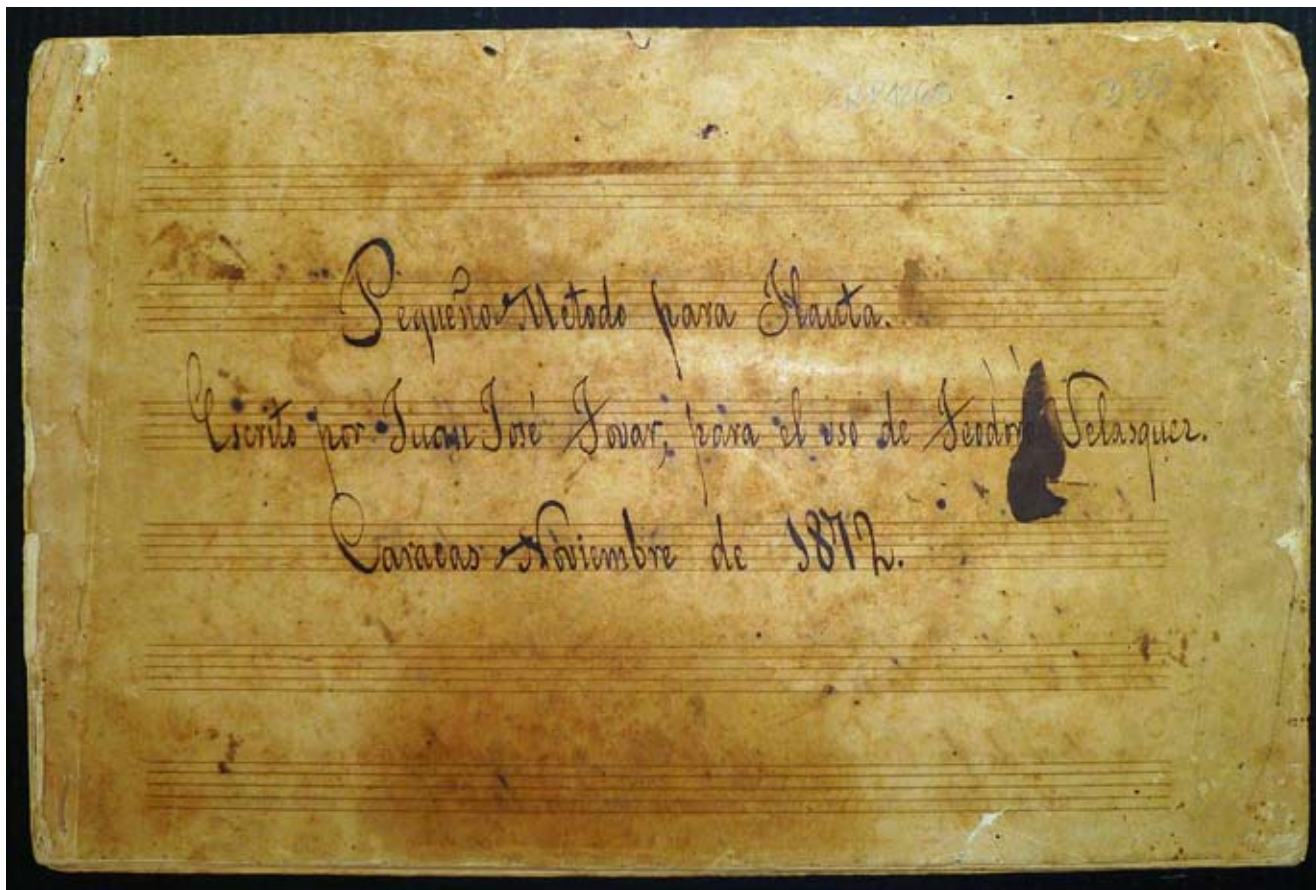 Pequeño Metodo para Flauta.
Escrito por Juan José Tovar, para el uso de Teodoro Velasquez.
Caracas Noviembre de 1872.